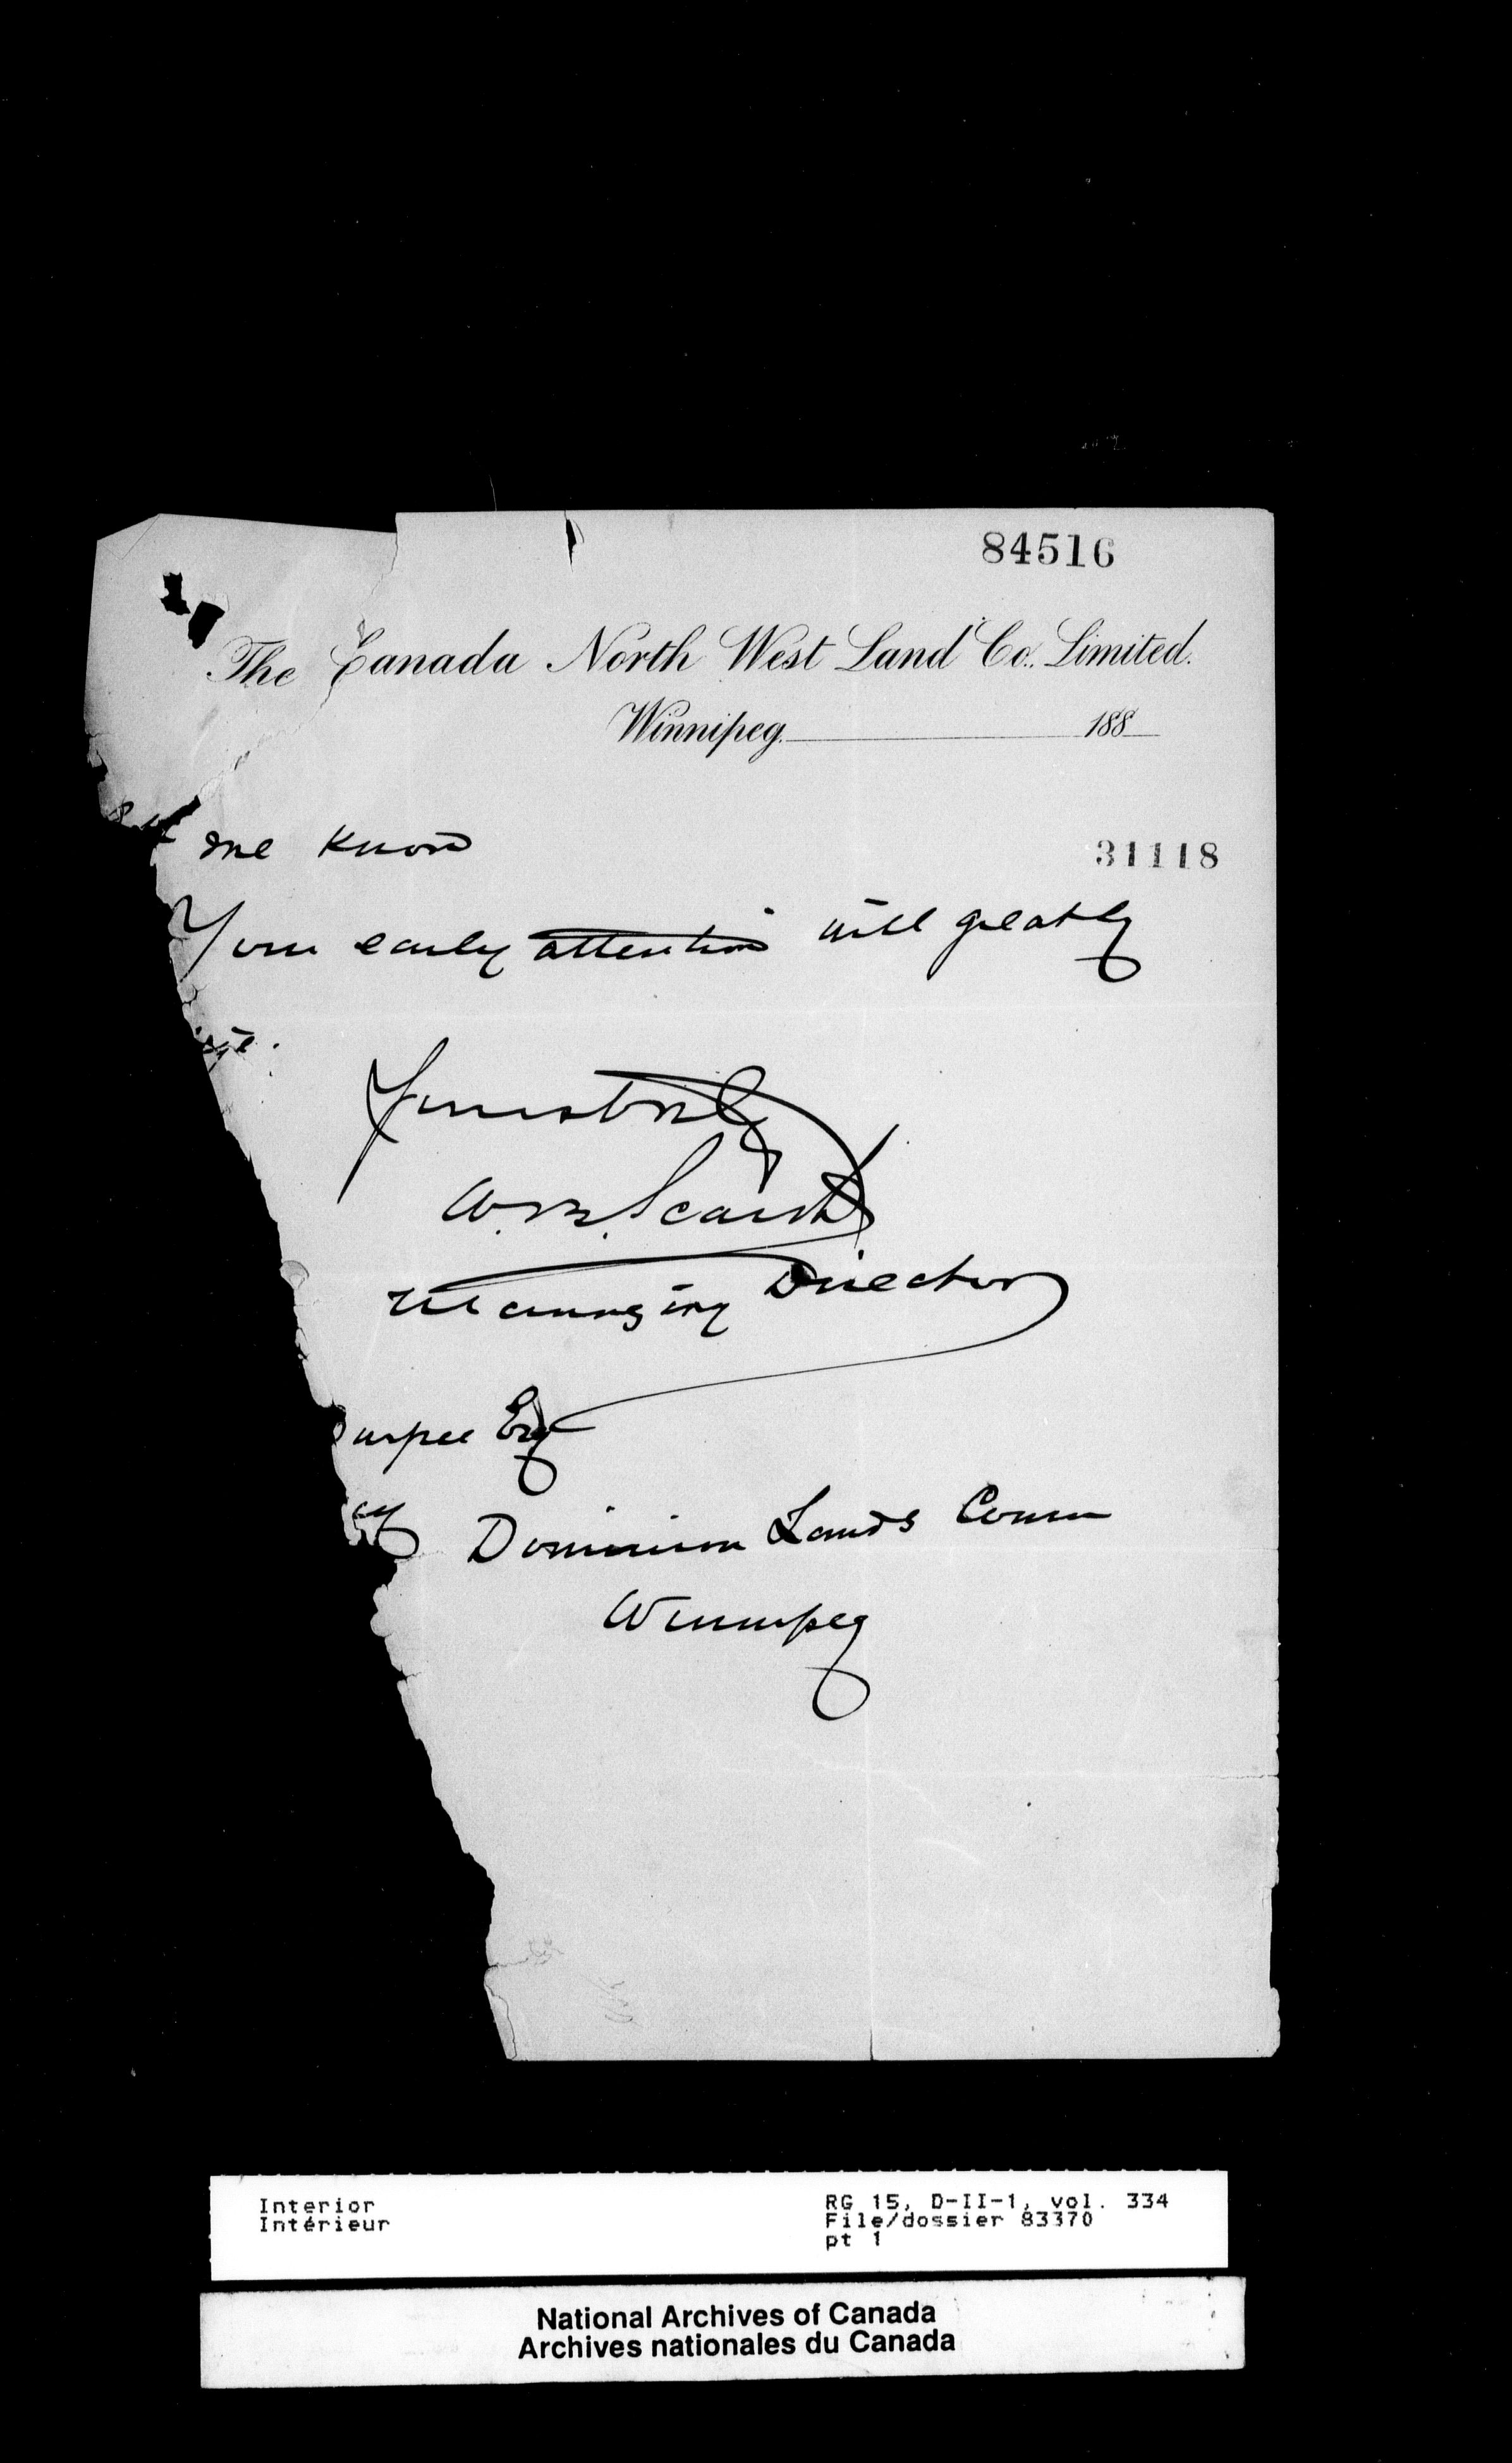 84516
The Canada North West Land Co. Limited.
Winnipeg 188
me know
31118
Your early attention will greatly
Yours truly
W.B. Scarth
Managing Director
urpee Esq
Dominion Lands Comm
Winnipeg
Interior
Intérieur
RG 15, D-II-1, vol. 334
File/dossier 83370
pt 1
National Archives of Canada
Archives nationales du Canada